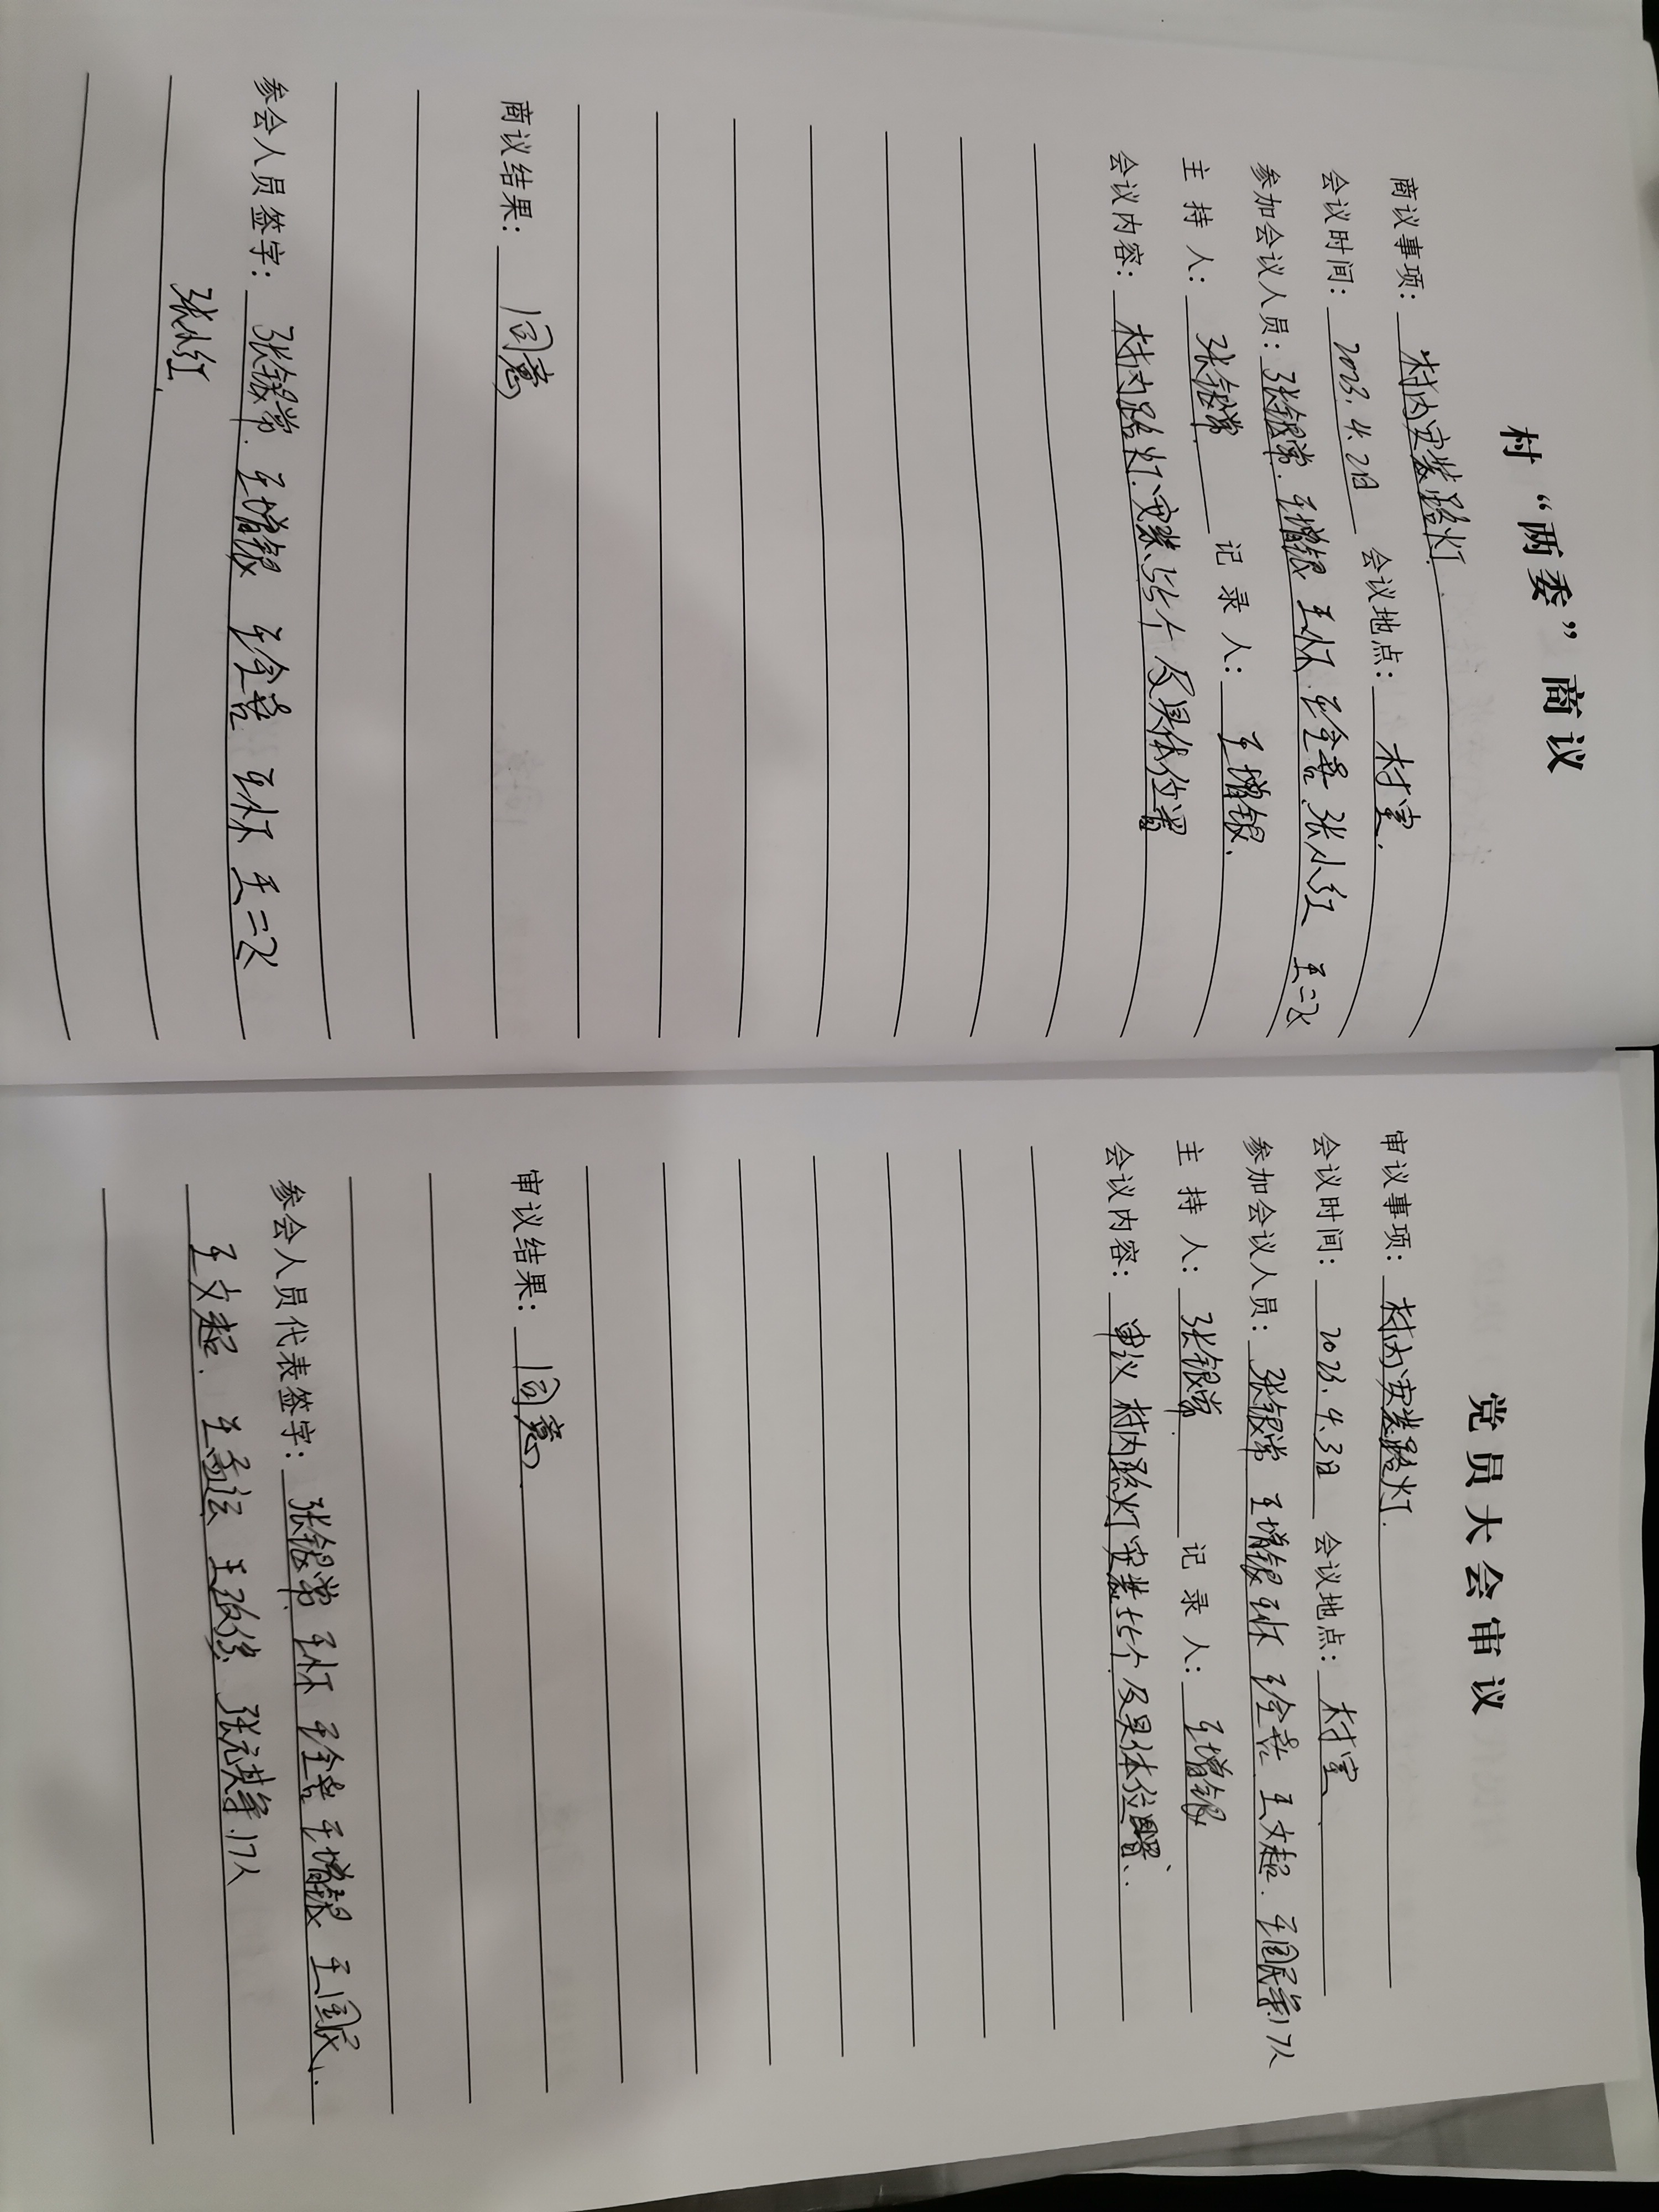 村“两委”商议
商议事项：村内安装路灯.
会议时间：2023.4.2日 会议地点：村室.
参加会议人员：张银常.王增银 王怀 王全喜.张小红 王二飞
主持人：张银常 记录人：王增银.
会议内容：村内路灯.安装55个及具体位置
商议结果：同意
参会人员签字：张银常.王增银 王全喜 王怀 王二飞
张小红.
党员大会审议
审议事项：村内安装路灯.
会议时间：2023.4.3日 会议地点：村室.
参加会议人员：张银常 王增银 王怀 王全喜.王文超.王国民等17人
主持人：张银常. 记录人：王增银
会议内容：审议村内路灯安装55个.及具体位置.
审议结果：同意.
参会人员代表签字：张银常.王怀 王全喜 王增银 王国民.
王文超.王孟运 张元其等17人